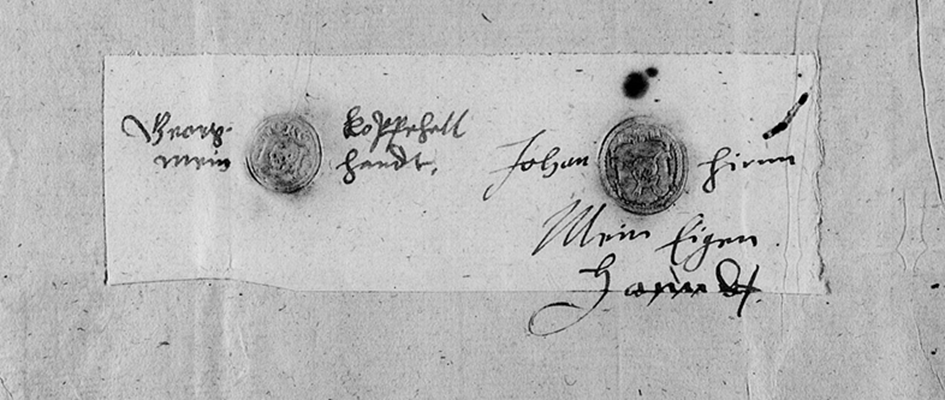 Georg Koppehell
mein handt.
Johan
Mein Eigen
Handt.